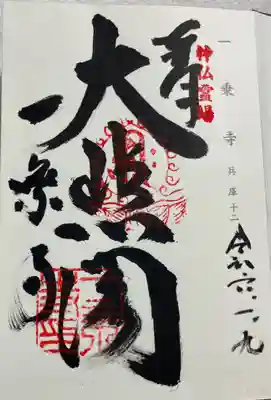 神仏霊場
一乗寺 兵庫十二
令和六・一・九
奉
大悲閣
一乗寺